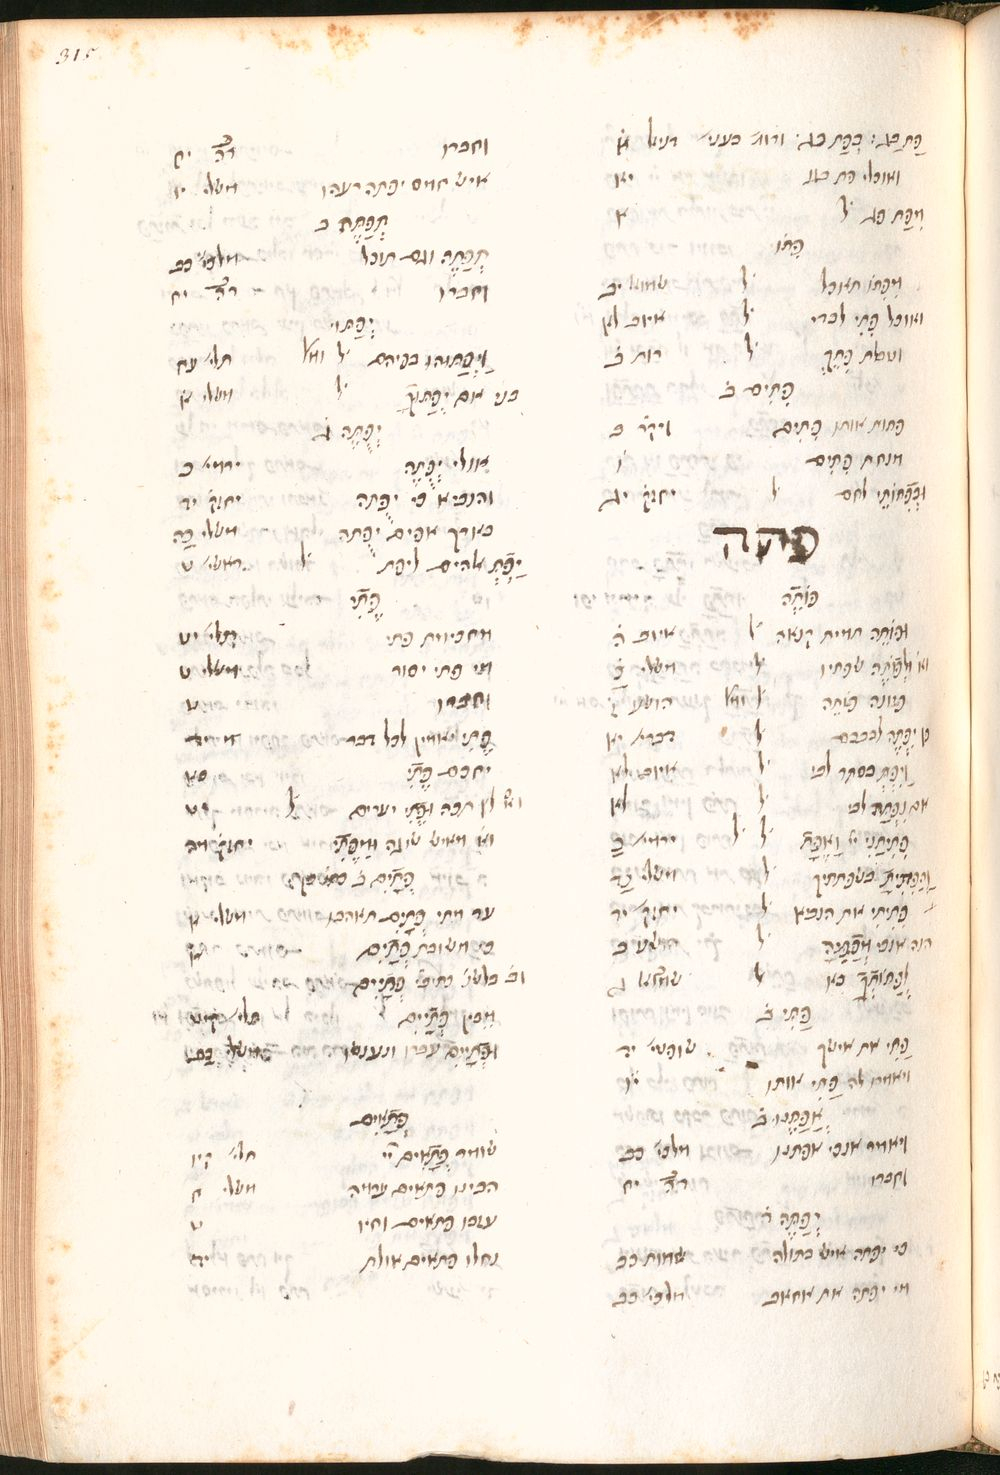 315
פַּת בַּג׳ בְּפַת בַּג׳ ורוא׳ כעני׳ דניאל א׳
ואוכלי פת בג יא
מִפַּת בַּג ל׳ א
פִּתּוֹ
מִפִּתּוֹ תאכל ל׳ שמוא׳ יב
ואוכל פִּתִּי לבדי ל׳ איוב לא
וטבלת פִּתֵּךְ ל׳ רות ב׳
פִּתִּים ב׳
פתות אותו פִּתִּים ויקר׳ ב
מנחת פִּתִּים ו׳
וּבִפְתוֹתֵי לחם ל׳ יחזק׳ יג
פתה
פּוֹתֶה
ופותה תמית קנאה ל׳ איוב ה׳
וּלְפוֹתֶה שפתיו ל׳ משלי כ׳
כיונה פותה ל׳ ומל׳ הושע ז׳
פן יִפְתֶּה לבבכם ל׳ דברי׳ יא
וַיִּפְתְּ בסתר לבי ל׳ איוב לא
אם נִפְתָּה לבי ל׳ לא
פִּתִּיתַנִי יי׳ וָאֶפָּת ל׳ ל׳ ירמי׳ כ
וַהֲפִתִּיתָ בשפתיך ל׳ משלי כד
פִּתֵּיתִי את הנביא ל׳ יחזק׳ יד
הנה אנכי מְפַתֶּיהָ ל׳ הושע ב
לְפַתּוֹתְךָ בא ל׳ שמוא׳ ג
פַּתִּי ב׳
פַּתִּי את אישך שופטי׳ יד
ויאמרו לה פַּתִּי אותו יו
אֲפַתֶּנּוּ ב׳
ויאמר אנכי אפתנו מלכי׳ כב
וחברו דה יח
יְפַתֶּה ה׳
כי יפתה איש בתולה שמות כב
מי יפתה את אחאב מלכי׳ כב
וחברו דה יח
איש חמס יפתה רעהו משלי יו
תְּפַתֶּה ב
תְּפַתֶּה וגם תוכל מלכי׳ כב
וחברו דה יח
יְפַתּוּ
וַיְפַתּוּהוּ בפיהם ל׳ ומל׳ תלי׳ עח
בני אם יְפַתּוּךָ ל׳ משלי א
יְפֻתֶּה ג׳
אולי יְפֻתֶּה ירמי׳ כ
והנביא כי יְפֻתֶּה יחזק׳ יד
בארך אפים יְפֻתֶּה משלי כה
יַפְתְּ אלהים ליפת ל׳ ראשי׳ ט
פֶּתִי
מחכימת פתי תלי׳ יט
מי פתי יסור משלי ט
וחברו ט
פֶּתִי יאמין לכל דבר יד
יחכם פֶּתִי כא
לץ תכה וּפֶתִי יערים ל׳ יט
מאיש שוגה וּמִפֶּתִי יחזק׳ מה
פְּתָיִם ב׳
עד מתי פְּתָיִם תאהבו משלי א
משובת פְּתָיִם א
וב׳ בלשו׳ כתיב׳ פְּתָיִים
מבין פְּתָיִים תלי׳ קיט
וּפְתָיִים עברו ונענשו משלי כב
פְּתָאִים
שומר פְּתָאִים יי׳ תלי׳ קיו
הבינו פתאים ערמה משלי ח
עזבו פתאים וחיו ט
נחלו פתאים אולת יד